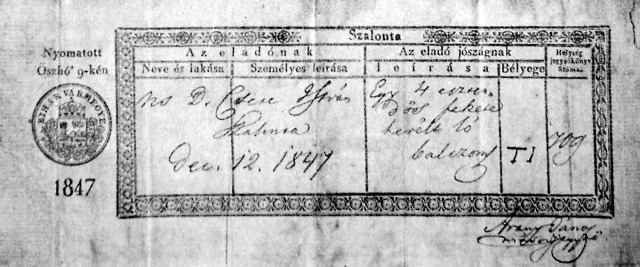 Szalonta
Nyomatott
Oszhó 9-kén
BIHAR VÁRMEGYE
1847
Az eladónak
Neve és lakása
Személyes leírása
Az eladó jószágnak
leírása
Bélyege
Helység jegyzőkönyv Száma.
ns D. Csere István
Szalonta
Dec. 12. 1847
Egy 4 eszten
dős fekete
herélt ló
TI
709
Arany János